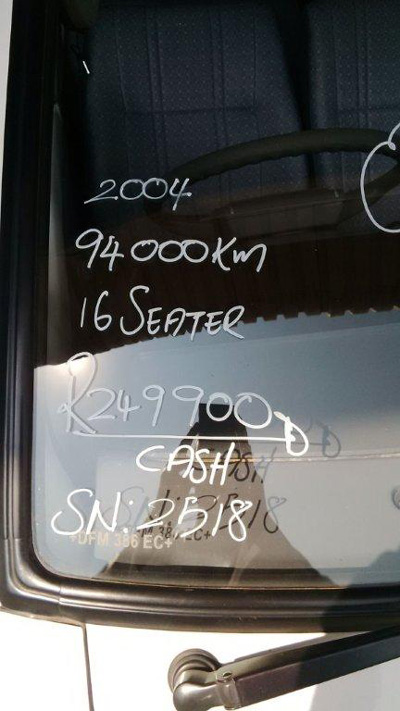 2004
94000Km
16 SEATER
R249900
CASH
SN: 2518
DFM 386 EC